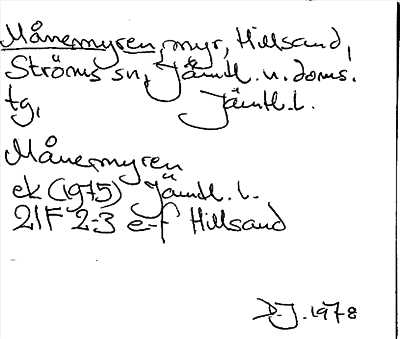 Månemyren, myr, Hillsand,
Ströms sn, Jämtl. n. doms.
tg, Jämtl. l.
Månemyren
ek (1975) Jämtl. l.
21F 2-3 e-f Hillsand
D.J. 1978